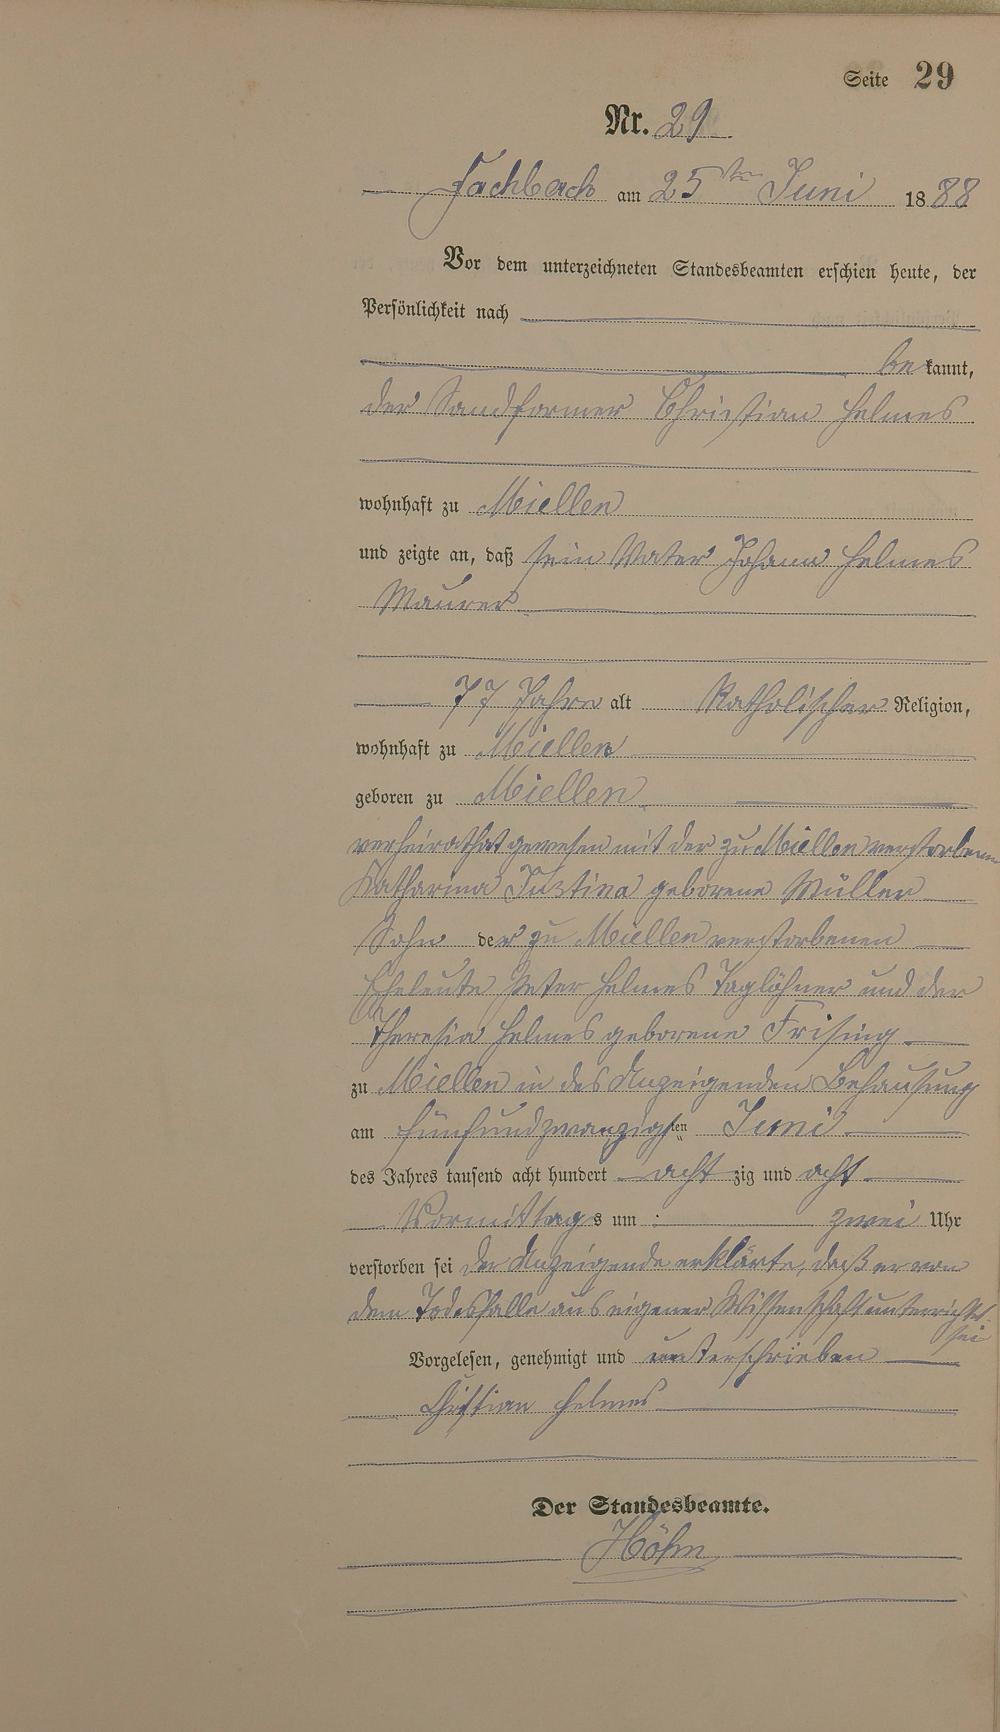 Seite 29
Nr. 29
Fachbach am 25ten Juni 1888
Vor dem unterzeichneten Standesbeamten erschien heute, der
Persönlichkeit nach
bekannt,
der Sandformer Christian Helmes
wohnhaft zu Miellen
und zeigte an, daß sein Vater Johann Helmes
Maurer
77 Jahre alt Katholischer Religion,
wohnhaft zu Miellen
geboren zu Miellen
verheirathet gewesen mit der zu Miellen verstorbenen
Katharina Justina geborene Müller
Sohn der zu Miellen verstorbenen
Eheleute Peter Helmes Taglöhner und der
Theresia Helmes geborene Frising
zu Miellen in des Anzeigenden Behausung
am fünfundzwanzigsten Juni
des Jahres tausend acht hundert achtzig und acht
Vormittags um zwei Uhr
verstorben sei der Anzeigende erklärte, daß er von
dem Todesfalle aus eigener Wissenschaft unterrichtet
sei
Vorgelesen, genehmigt und unterschrieben
Christian Helmes
Der Standesbeamte.
Höhn